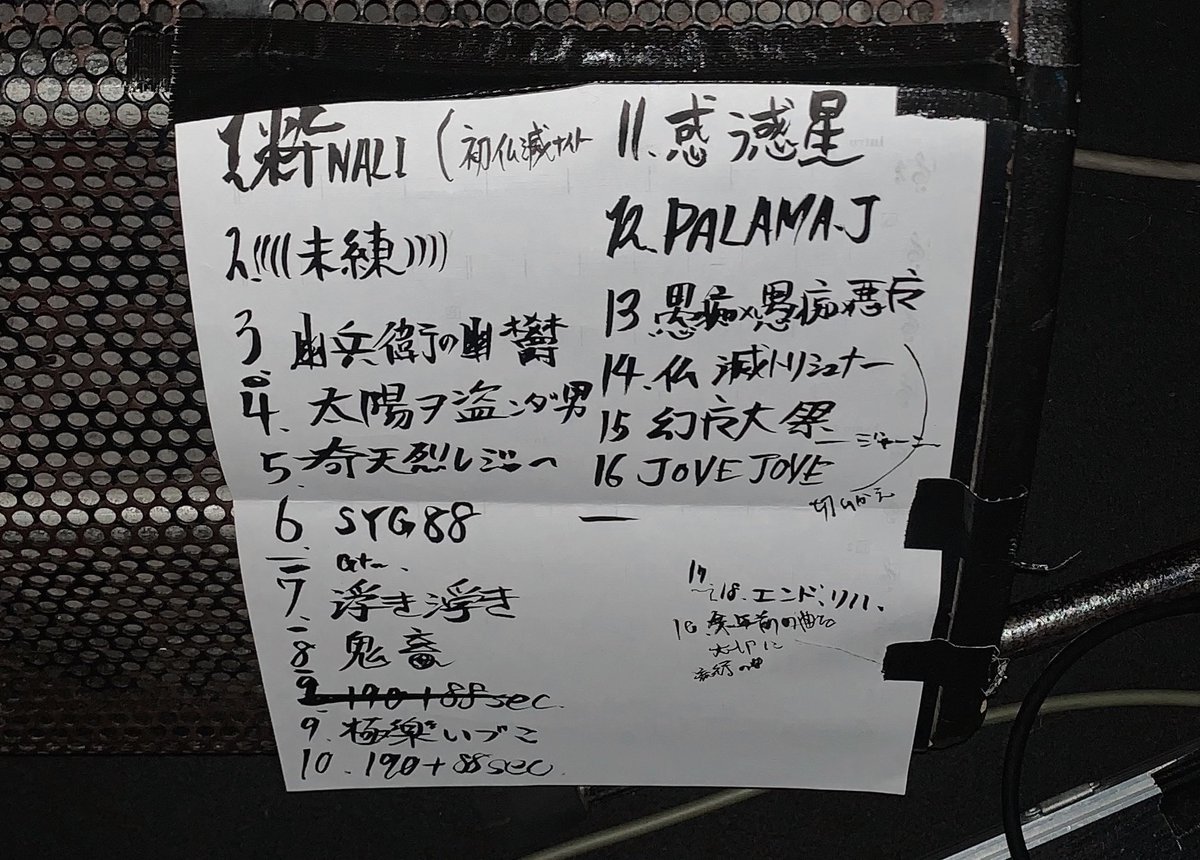 1. 粋NALI (初仏滅ナイト
2. ((((未練))))
3 幽兵衛の幽鬱
4. 太陽ヲ盗ンダ男
5. 奇天烈レジャー
6 SYG88
Gt~.
7. 浮き浮き
8 鬼畜
9 190+88sec.
9. 極楽いづこ
10. 190+88sec.
11. 惑惑星
12. PALAMA.J
13 愚痴×愚痴×悪庁
14. 仏滅トリシュナー
15 幻庁大祭
ジャーニー
16 JOVE JOVE
切りかえ
17
~18. エンド、リハ、